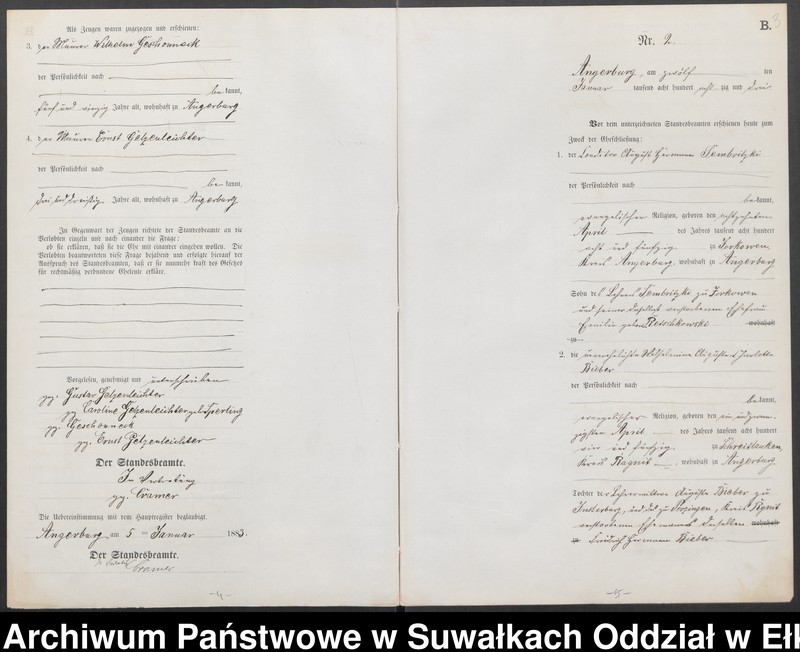 Als Zeugen waren zugezogen und erschienen:
3. der Maurer Wilhelm Geschonneck
der Persönlichkeit nach
be kannt,
fünf und vierzig Jahre alt, wohnhaft zu Angerburg
4. der Maurer Ernst Getzenleichter
der Persönlichkeit nach
be kannt,
drei und dreißig Jahre alt, wohnhaft zu Angerburg
In Gegenwart der Zeugen richtete der Standesbeamte an die
Verlobten einzeln und nach einander die Frage:
ob sie erklären, daß sie die Ehe mit einander eingehen wollen. Die
Verlobten beantworteten diese Frage bejahend und erfolgte hierauf der
Ausspruch des Standesbeamten, daß er sie nunmehr kraft des Gesetzes
für rechtmäßig verbundene Eheleute erkläre.
Vorgelesen, genehmigt und unterschrieben
gz. Gustav Getzenleichter
gz. Caroline Getzenleichter geb. Sperling
gz. Geschonneck
gz. Ernst Getzenleichter
Der Standesbeamte.
In Vertretung
gz. Cramer
Die Uebereinstimmung mit dem Hauptregister beglaubigt.
Angerburg am 5 Januar 1883.
Der Standesbeamte.
In Vertretung
Cramer
-4-
B.
3
Nr. 2.
Angerburg, am zwölf ten
Januar tausend acht hundert acht zig und drei
Vor dem unterzeichneten Standesbeamten erschienen heute zum
Zweck der Eheschließung:
1. der Conditor August Hermann Sembritzki
der Persönlichkeit nach
be kannt,
evangelischer Religion, geboren den achtzehnten
April des Jahres tausend acht hundert
acht und fünfzig zu Jorkowen
Kreis Angerburg, wohnhaft zu Angerburg
Sohn des Lehrers Sembritzki zu Jorkowen
und seiner daselbst verstorbenen Ehefrau
Emilie geborne Petschkowski wohnhaft
zu
2. die unverehelichte Wilhelmine Auguste Charlotte
Bieber
der Persönlichkeit nach
be kannt,
evangelischer Religion, geboren den ein und zwan
zigsten April des Jahres tausend acht hundert
vier und fünfzig zu
Kreis Ragnit, wohnhaft zu Angerburg
Tochter der Lehrerwittwe Auguste Bieber zu
Insterburg, und des zu Kreis Ragnit
verstorbenen Ehemannes derselben wohnhaft
zu Friedrich Hermann Bieber
-5-
Archiwum Państwowe w Suwałkach Oddział w Ełk